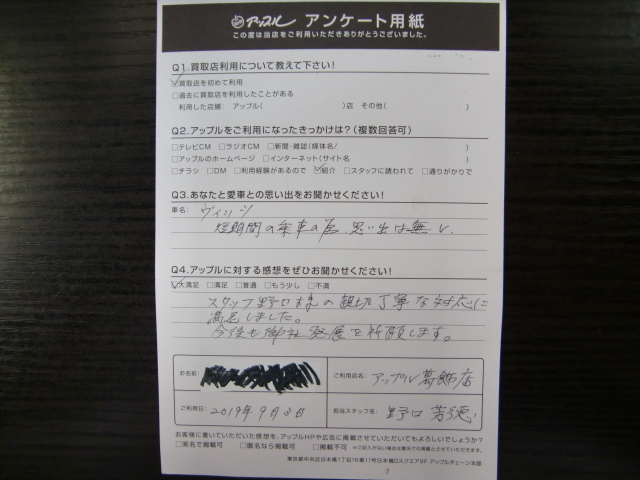 アップル アンケート用紙
この度は当店をご利用いただきありがとうございました。
Q1.買取店利用について教えて下さい!
☑買取店を初めて利用
□過去に買取店を利用したことがある
利用した店舗: アップル( )店 その他( )
Q2.アップルをご利用になったきっかけは?(複数回答可)
□テレビCM □ラジオCM □新聞・雑誌(媒体名/ )
□アップルのホームページ □インターネット(サイト名 )
□チラシ □DM □利用経験があるので ☑紹介 □スタッフに誘われて □通りがかりで
Q3.あなたと愛車との思い出をお聞かせください!
車名: ヴィッツ
短期間の乗車の為 思い出は無し.
Q4.アップルに対する感想をぜひお聞かせください!
☑大満足 □満足 □普通 □もう少し □不満
スタッフ野口様の親切丁寧な対応に
満足しました。
今後も御社発展を祈願します。
お名前:
ご利用店名: アップル葛飾店
ご利用日: 2019年9月3日
担当スタッフ名: 野口 芳徳
お客様に書いていただいた感想を、アップルHPや広告に掲載させていただいてもよろしいでしょうか?
□実名で掲載可 □匿名なら掲載可 □掲載不可 ※ご記入がない場合は匿名での掲載とさせていただきます。
東京都中央区日本橋1丁目19番11号日本橋Dスクエア9F アップルチェーン本部